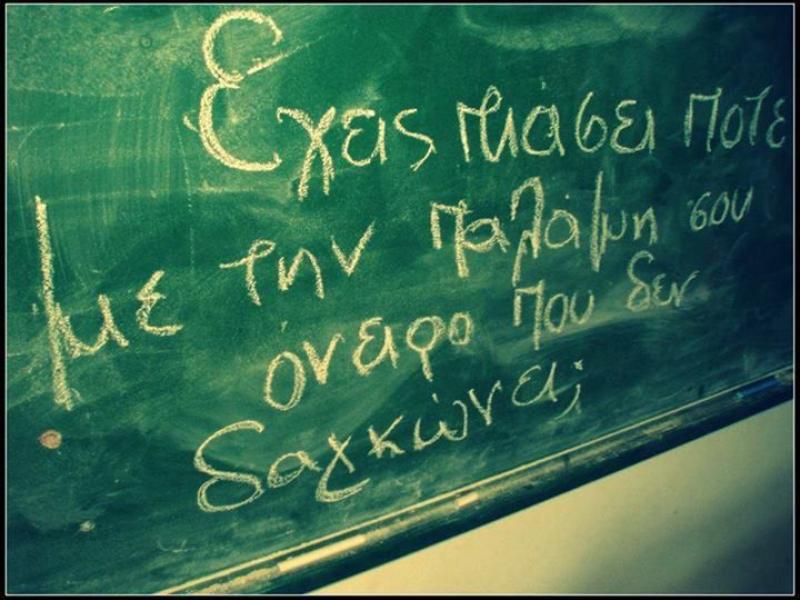 Έχεις πιάσει ποτέ
με την παλάμη σου
όνειρο που δεν
δαγκώνει;